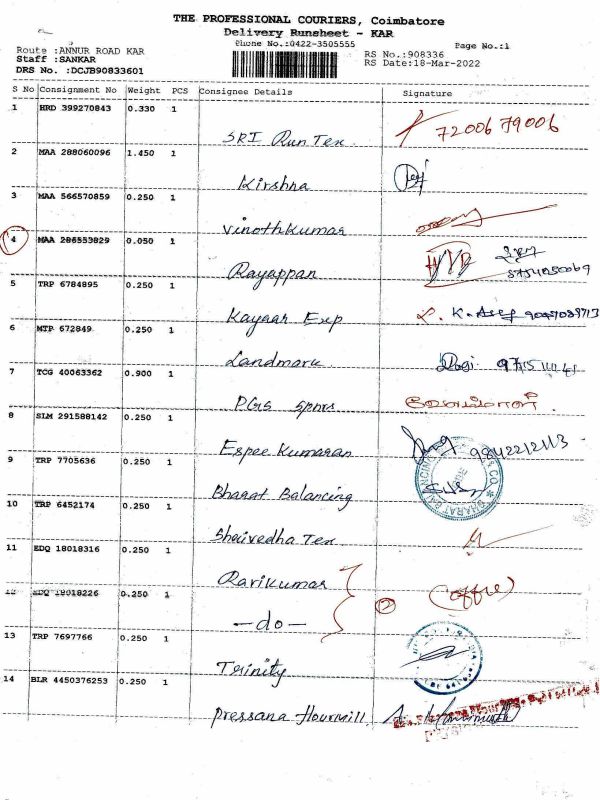 THE PROFESSIONAL COURIERS, Coimbatore
Delivery Runsheet - KAR
Phone No.:0422-3505555
Page No.:1
Route :ANNUR ROAD KAR
Staff :SANKAR
DRS No. :DCJB90833601
RS No.:908336
RS Date:18-Mar-2022
S No Consignment No Weight PCS Consignee Details Signature
1 HRD 399270843 0.330 1
SRI Run Tex 72006 79006
2 MAA 288060096 1.450 1
Kirshna
3 MAA 566570859 0.250 1
Vinothkumar
4 MAA 286553829 0.050 1
Rayappan
5 TRP 6784895 0.250 1
Kayaar Exp
6 MTP 672849 0.250 1
Landmark
7 TCG 40063362 0.900 1
PGS Spnrs
8 SLM 291588142 0.250 1
Espee Kumaran 9842212113
9 TRP 7705636 0.250 1
Bharat Balancing
BHARAT BALANCING & CO.
10 TRP 6452174 0.250 1
Shrivedha Tex
11 EDQ 18018316 0.250 1
Ravikumar
12 EDQ 18018226 0.250 1
-do- 2
13 TRP 7697766 0.250 1
Trinity
14 BLR 4450376253 0.250 1
Pressana flourmill